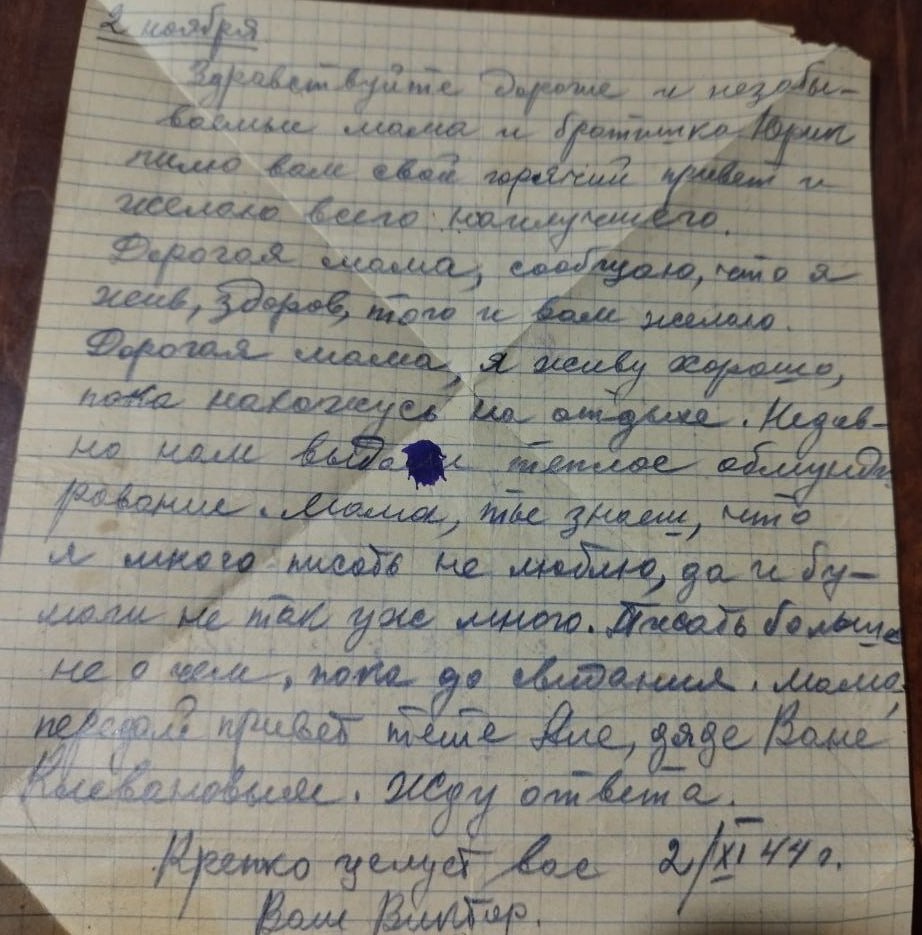 2 ноября.
Здравствуйте дорогие и незабы-
ваемые мама и братишка Юрий
шлю вам свой горячий привет и
желаю всего наилучшего.
Дорогая мама, сообщаю, что я
жив, здоров, того и вам желаю.
Дорогая мама, я живу хорошо,
пока нахожусь на отдыхе. Недав-
но нам выдали теплое обмунди
рование. Мама, ты знаеш, что
я много писать не люблю, да и бу-
маги не так уж много. Писать больше
не о чем, пока до свидания. Мама,
передай привет тете Ане, дяде Ване
Жду ответа.
Крепко целует вас 2/XI 44 г.
Ваш Виктор.